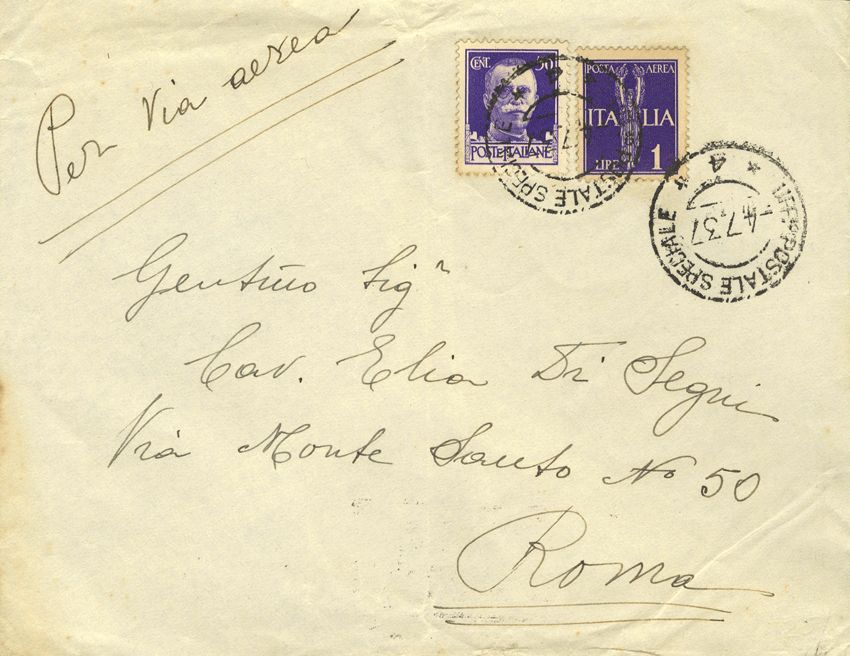 Per Via aerea
CENT. 50
POSTE ITALIANE
POSTA AEREA
ITALIA
LIRE 1
UFF. POSTALE SPECIALE * 4 *
4.7.37
Gentmo Sigr
Cav. Elia Di Segni
Via Monte Santo No 50
Roma